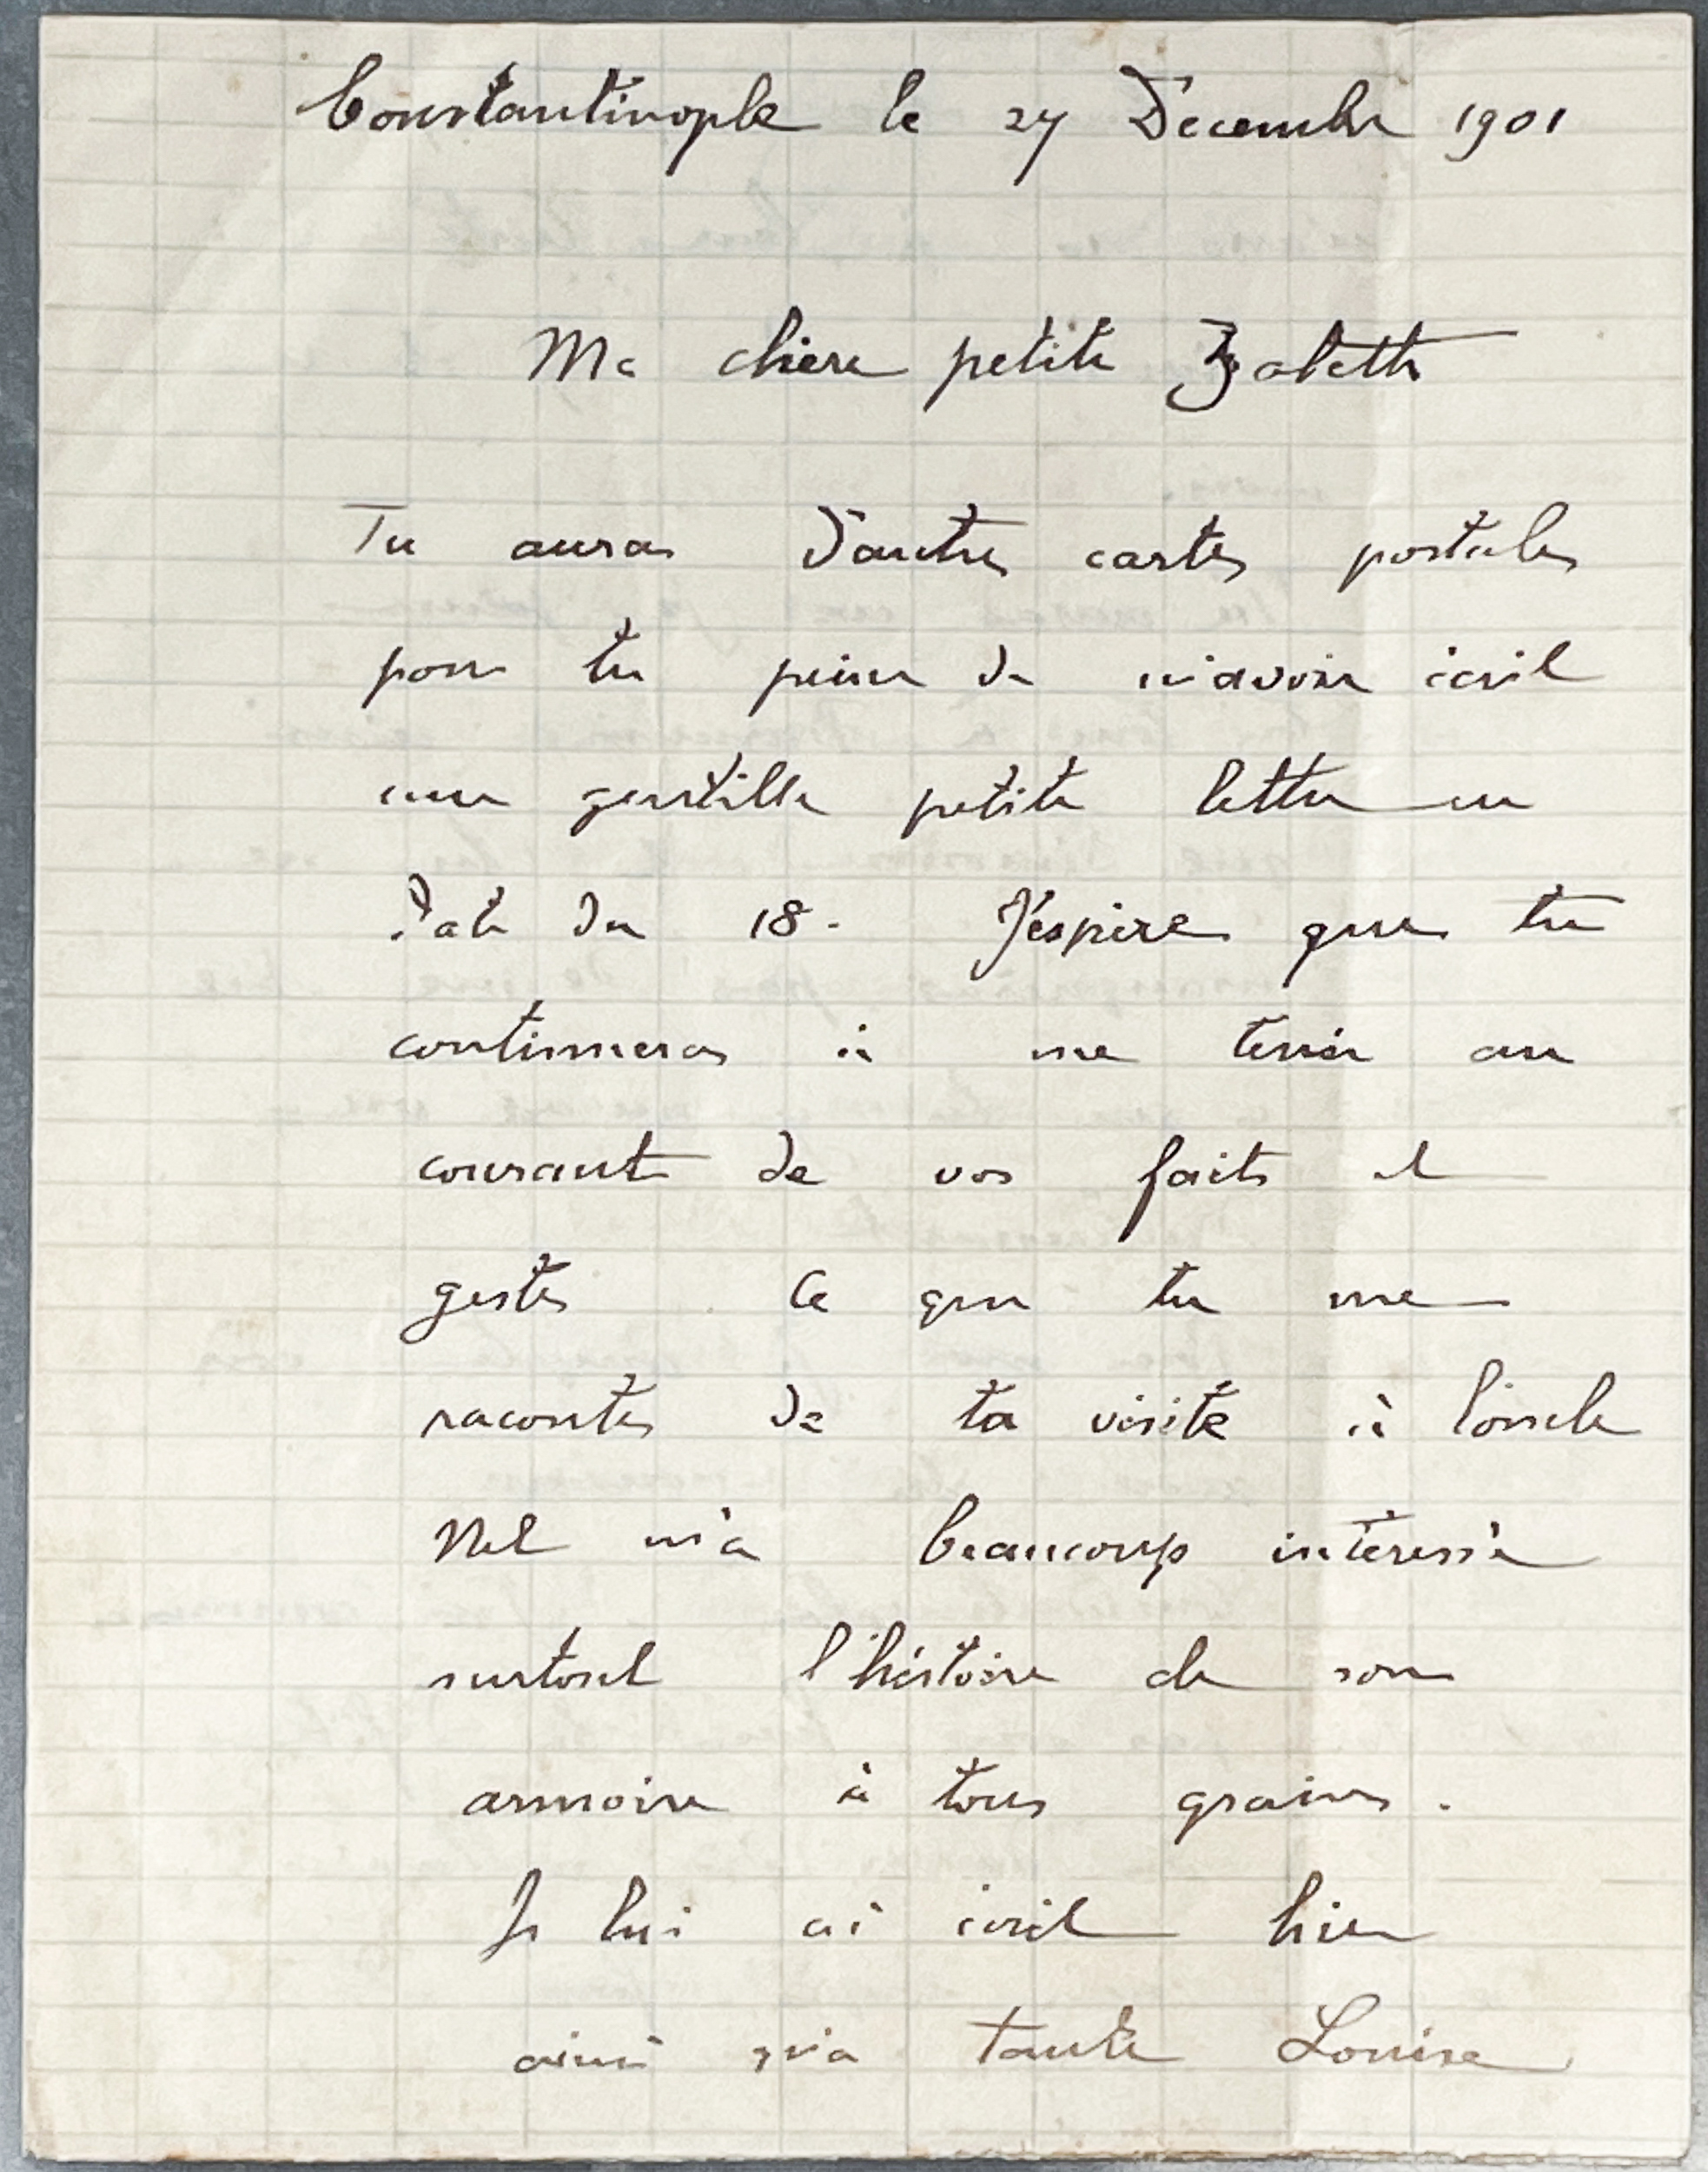 Constantinople le 27 Décembre 1901
Ma chère petite Zabette
Tu auras d'autres cartes postales
pour ta peine de m'avoir écrit
une gentille petite lettre en
date du 18. J'espère que tu
continueras à me tenir au
courant de vos faits et
gestes Ce que tu me
racontes de ta visite à l'oncle
Nel m'a beaucoup intéressé
surtout l'histoire de son
armoire à tous grains.
Je lui ai écrit hier
ainsi qu'à tante Louise